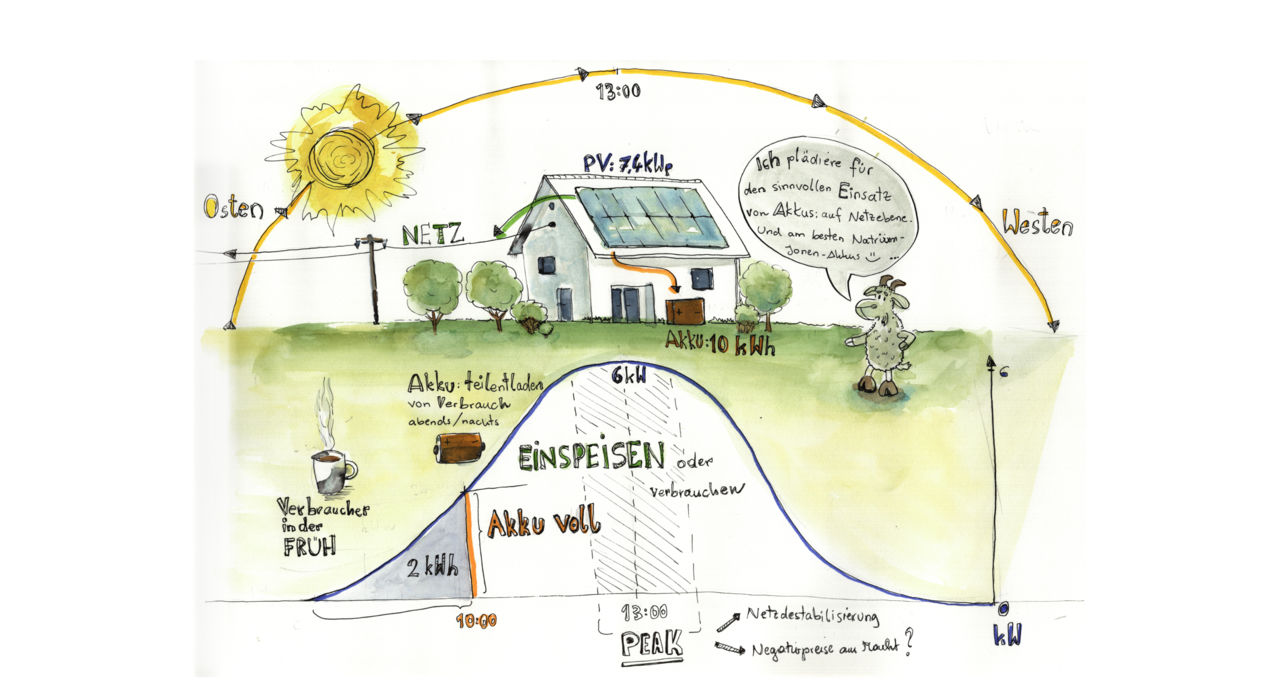 13:00
PV: 7,4kWp
Osten
NETZ
Westen
Ich plädiere für
den sinnvollen Einsatz
von Akkus: auf Netzebene.
Und am besten Natrium-
Jonen-Akkus ...
Akku: 10 kWh
Akku: teilentladen
von Verbrauch
abends/nachts
6kW
6
EINSPEISEN oder
verbrauchen
Verbraucher
in der
FRÜH
Akku voll
2 kWh
10:00
13:00
PEAK
Netzdestabilisierung
Negativpreise am Markt?
kW